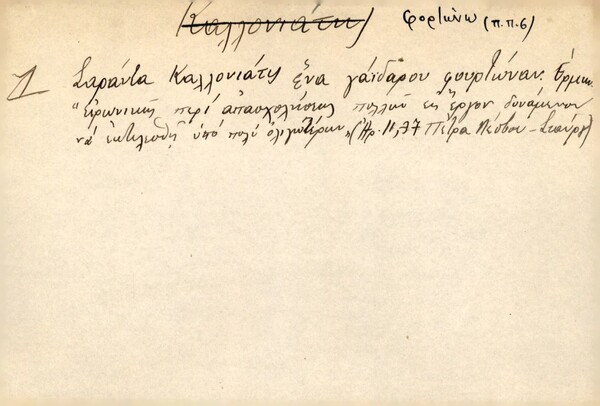 (Καλλονιάτης) φορτώνω (π.π.6)
1 Σαράντα Καλλονιάτις ἕνα γάϊδαρου φουρτώναν. Ἑρμην.
"εἰρωνικῶς περί ἀπασχολήσεως πολλῶν εἰς ἔργον δυνάμενον
νά ἐκτελεσθῇ ὑπό πολύ ὀλιγωτέρων" (Ἀρ. 11,77 Πέτρα Λέσβου -